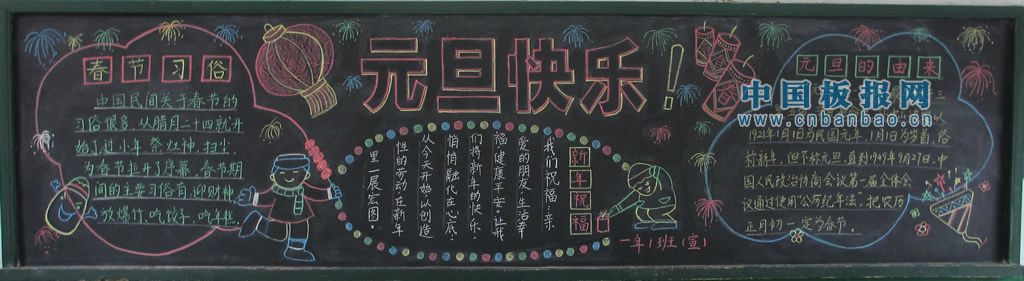 元旦快乐!
春节习俗
中国民间关于春节的
习俗很多,从腊月二十四就开
始了过小年、祭灶神、扫尘,
为春节拉开了序幕。春节期
间的主要习俗有:迎财神、
放爆竹、吃饺子、吃年糕。
新年祝福
我们祝福:亲
爱的朋友,生活幸
福健康平安。让我
们将新年的快乐,
悄悄融化在心底,
从今天开始以创造
性的劳动在新年
里一展宏图。
一年1班(宣)
元旦的由来
中国板报网
www.cnbanbao.cn
1921年1月1日为民国元年,1月1日为岁首,俗
称新年,但不称元旦,直到1949年9月27日,中
国人民政治协商会议第一届全体会
议通过使用"公历纪年法",把农历
正月初一定为春节。